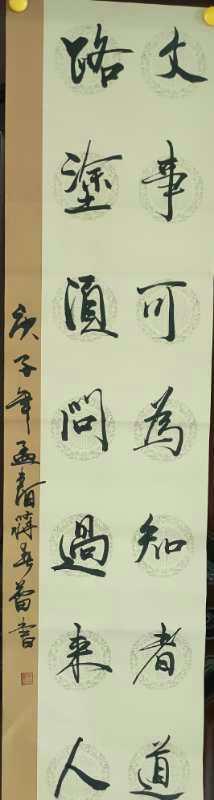 文事可為知者道
路塗須問過來人
庚子年孟蔣春蕾書